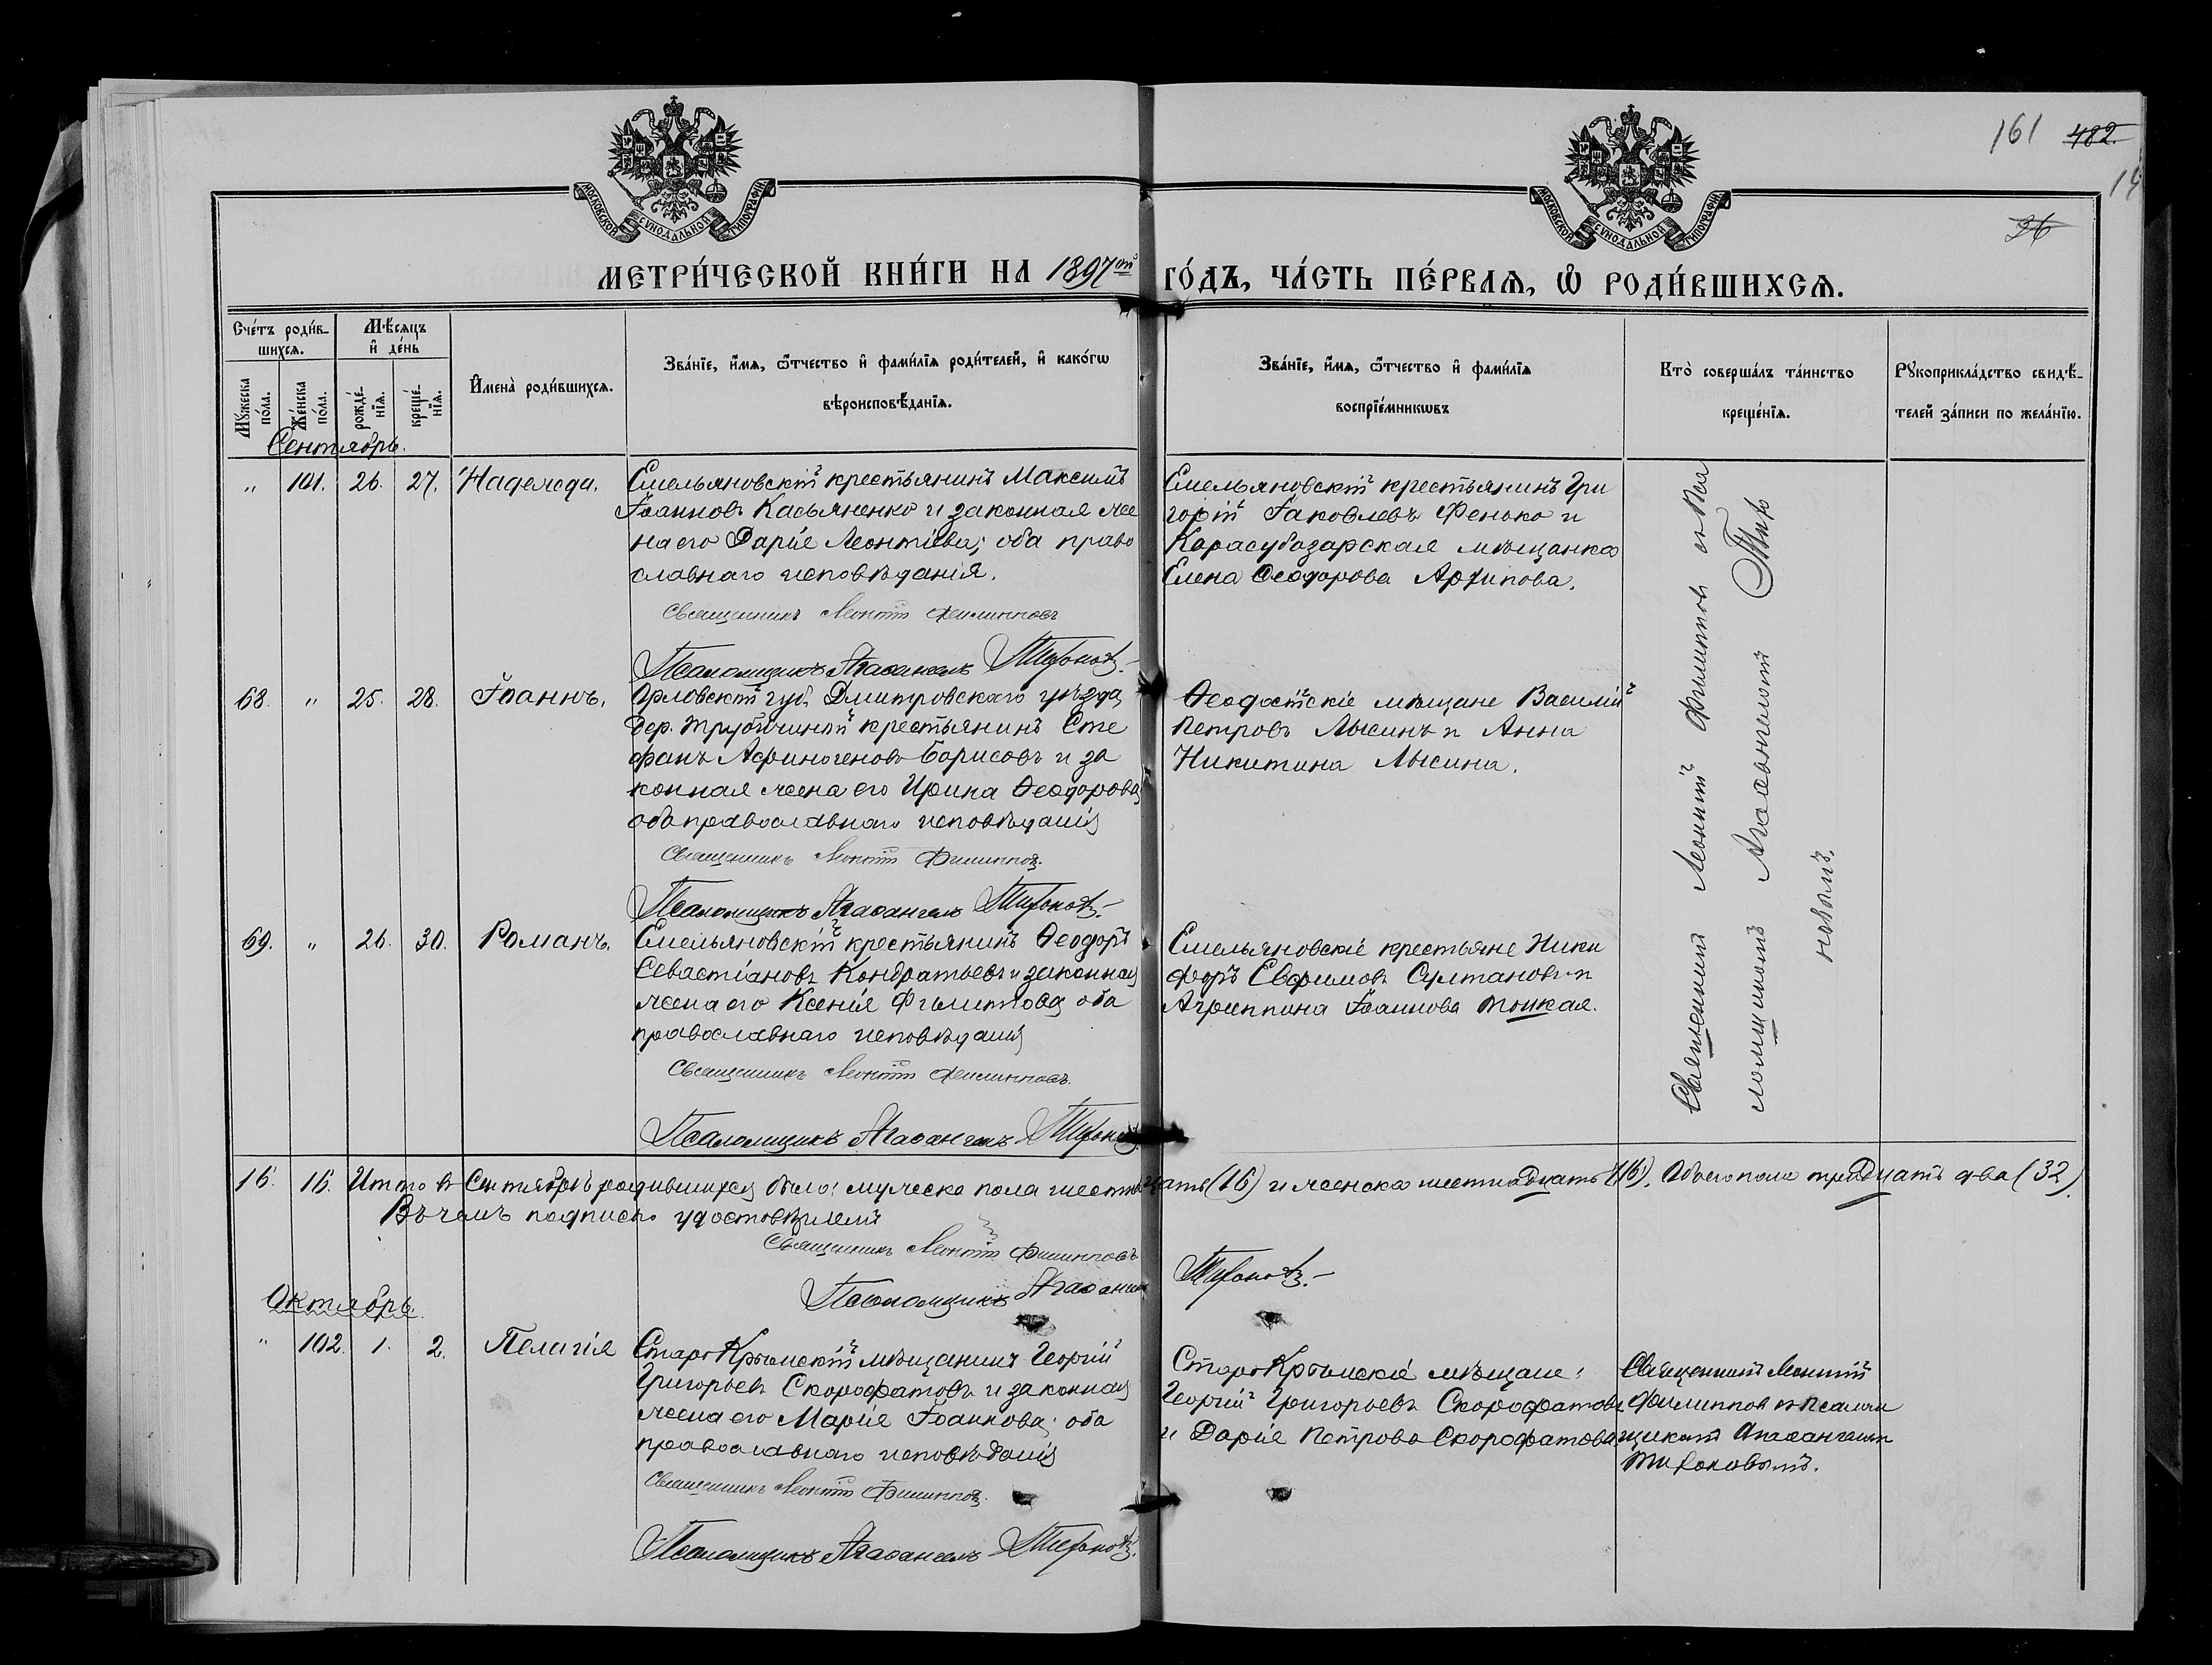 161 482.
19
36
МОСКОВСКОЙ СѴНОДАЛЬНОЙ ТИПОГРАФІИ
МОСКОВСКОЙ СѴНОДАЛЬНОЙ ТИПОГРАФІИ
МЕТРИ́ЧЕСКОЙ КНИ́ГИ НА 1897ой ГО́ДЪ, ЧА́СТЬ ПЕ́РВАѦ, Ѡ҆ РОДИ́ВШИХСѦ.
Сче́тъ роди́в-
шихсѧ.
Мꙋ́жеска по́ла.
Же́нска по́ла.
Мѣ́сѧцъ и҆ де́нь
рожде́-нїѧ.
креще́-нїѧ.
И҆мена̀ роди́вшихсѧ.
Зва́нїе, и҆́мѧ, ѻ҆́тчество и҆ фами́лїѧ роди́телей, и҆ како́гѡ
вѣроисповѣ́данїѧ.
Зва́нїе, и҆́мѧ, ѻ҆́тчество и҆ фами́лїѧ
воспрїе́мникѡвъ
Кто̀ соверша́лъ та́инство
креще́нїѧ.
Рꙋкоприкла́дство свидѣ́-
телей за́писи по жела́нїю.
Сентябрь.
" 101. 26. 27. Надежда.
Емельяновскій крестьянинъ Максимъ
Іоанновъ Касьяненко и законная же
на его Дарія Леонтіева; оба право
славнаго исповѣданія.
Священникъ Леонтій Филипповъ
Псаломщикъ Агаѳангелъ Тихоновъ.
Емельяновскій крестьянинъ Гри
горій Іаковлевъ Фенько и
Карасубазарская мѣщанка
Елена Ѳеодорова Архипова.
68. " 25. 28. Іоаннъ.
Орловской губ. Дмитровскаго уѣзда,
дер. крестьянинъ Сте
фанъ Афиногеновъ Борисовъ и за
конная жена его Ирина Ѳеодорова
оба православнаго исповѣданія
Священникъ Леонтій Филипповъ.
Псаломщикъ Агаѳангелъ Тихоновъ.
Ѳеодосійскіе мѣщане Василій
Петровъ Лысинъ и Анна
Никитина Лысина.
69. " 26. 30. Романъ.
Емельяновскій крестьянинъ Ѳеодоръ
Севастіановъ Кондратьевъ и законная
жена его Ксенія Филиппова оба
православнаго исповѣданія
Священникъ Леонтій Филипповъ.
Псаломщикъ Агаѳангелъ Тихоновъ.
Емельяновскіе крестьяне Ники
форъ Евфимовъ Султановъ и
Агриппина Іоаннова Тонкая.
Священникъ Леонтій Филипповъ съ Пса
ломщикомъ Агаѳангеломъ Тихо
новымъ.
16. 16. Итого въ Сентябрѣ родившихся было: мужеска пола шестнадцать (16) и женска шестнадцать (16). Обоего пола тридцать два (32).
Въ чемъ подписью удостовѣряемъ
Священникъ Леонтій Филипповъ
Псаломщикъ Агаѳангелъ Тихоновъ.
Октябрь.
" 102. 1. 2. Пелагія
СтароКрымскій мѣщанинъ Георгій
Григорьевъ Скорофатовъ и законная
жена его Марія Іоаннова; оба
православнаго исповѣданія
Священникъ Леонтій Филипповъ.
Псаломщикъ Агаѳангелъ Тихоновъ.
СтароКрымскіе мѣщане:
Георгій Григорьевъ Скорофатовъ
и Дарія Петрова Скорофатова.
Священникъ Леонтій
Филипповъ съ псалом
щикомъ Агаѳангеломъ
Тихоновымъ.